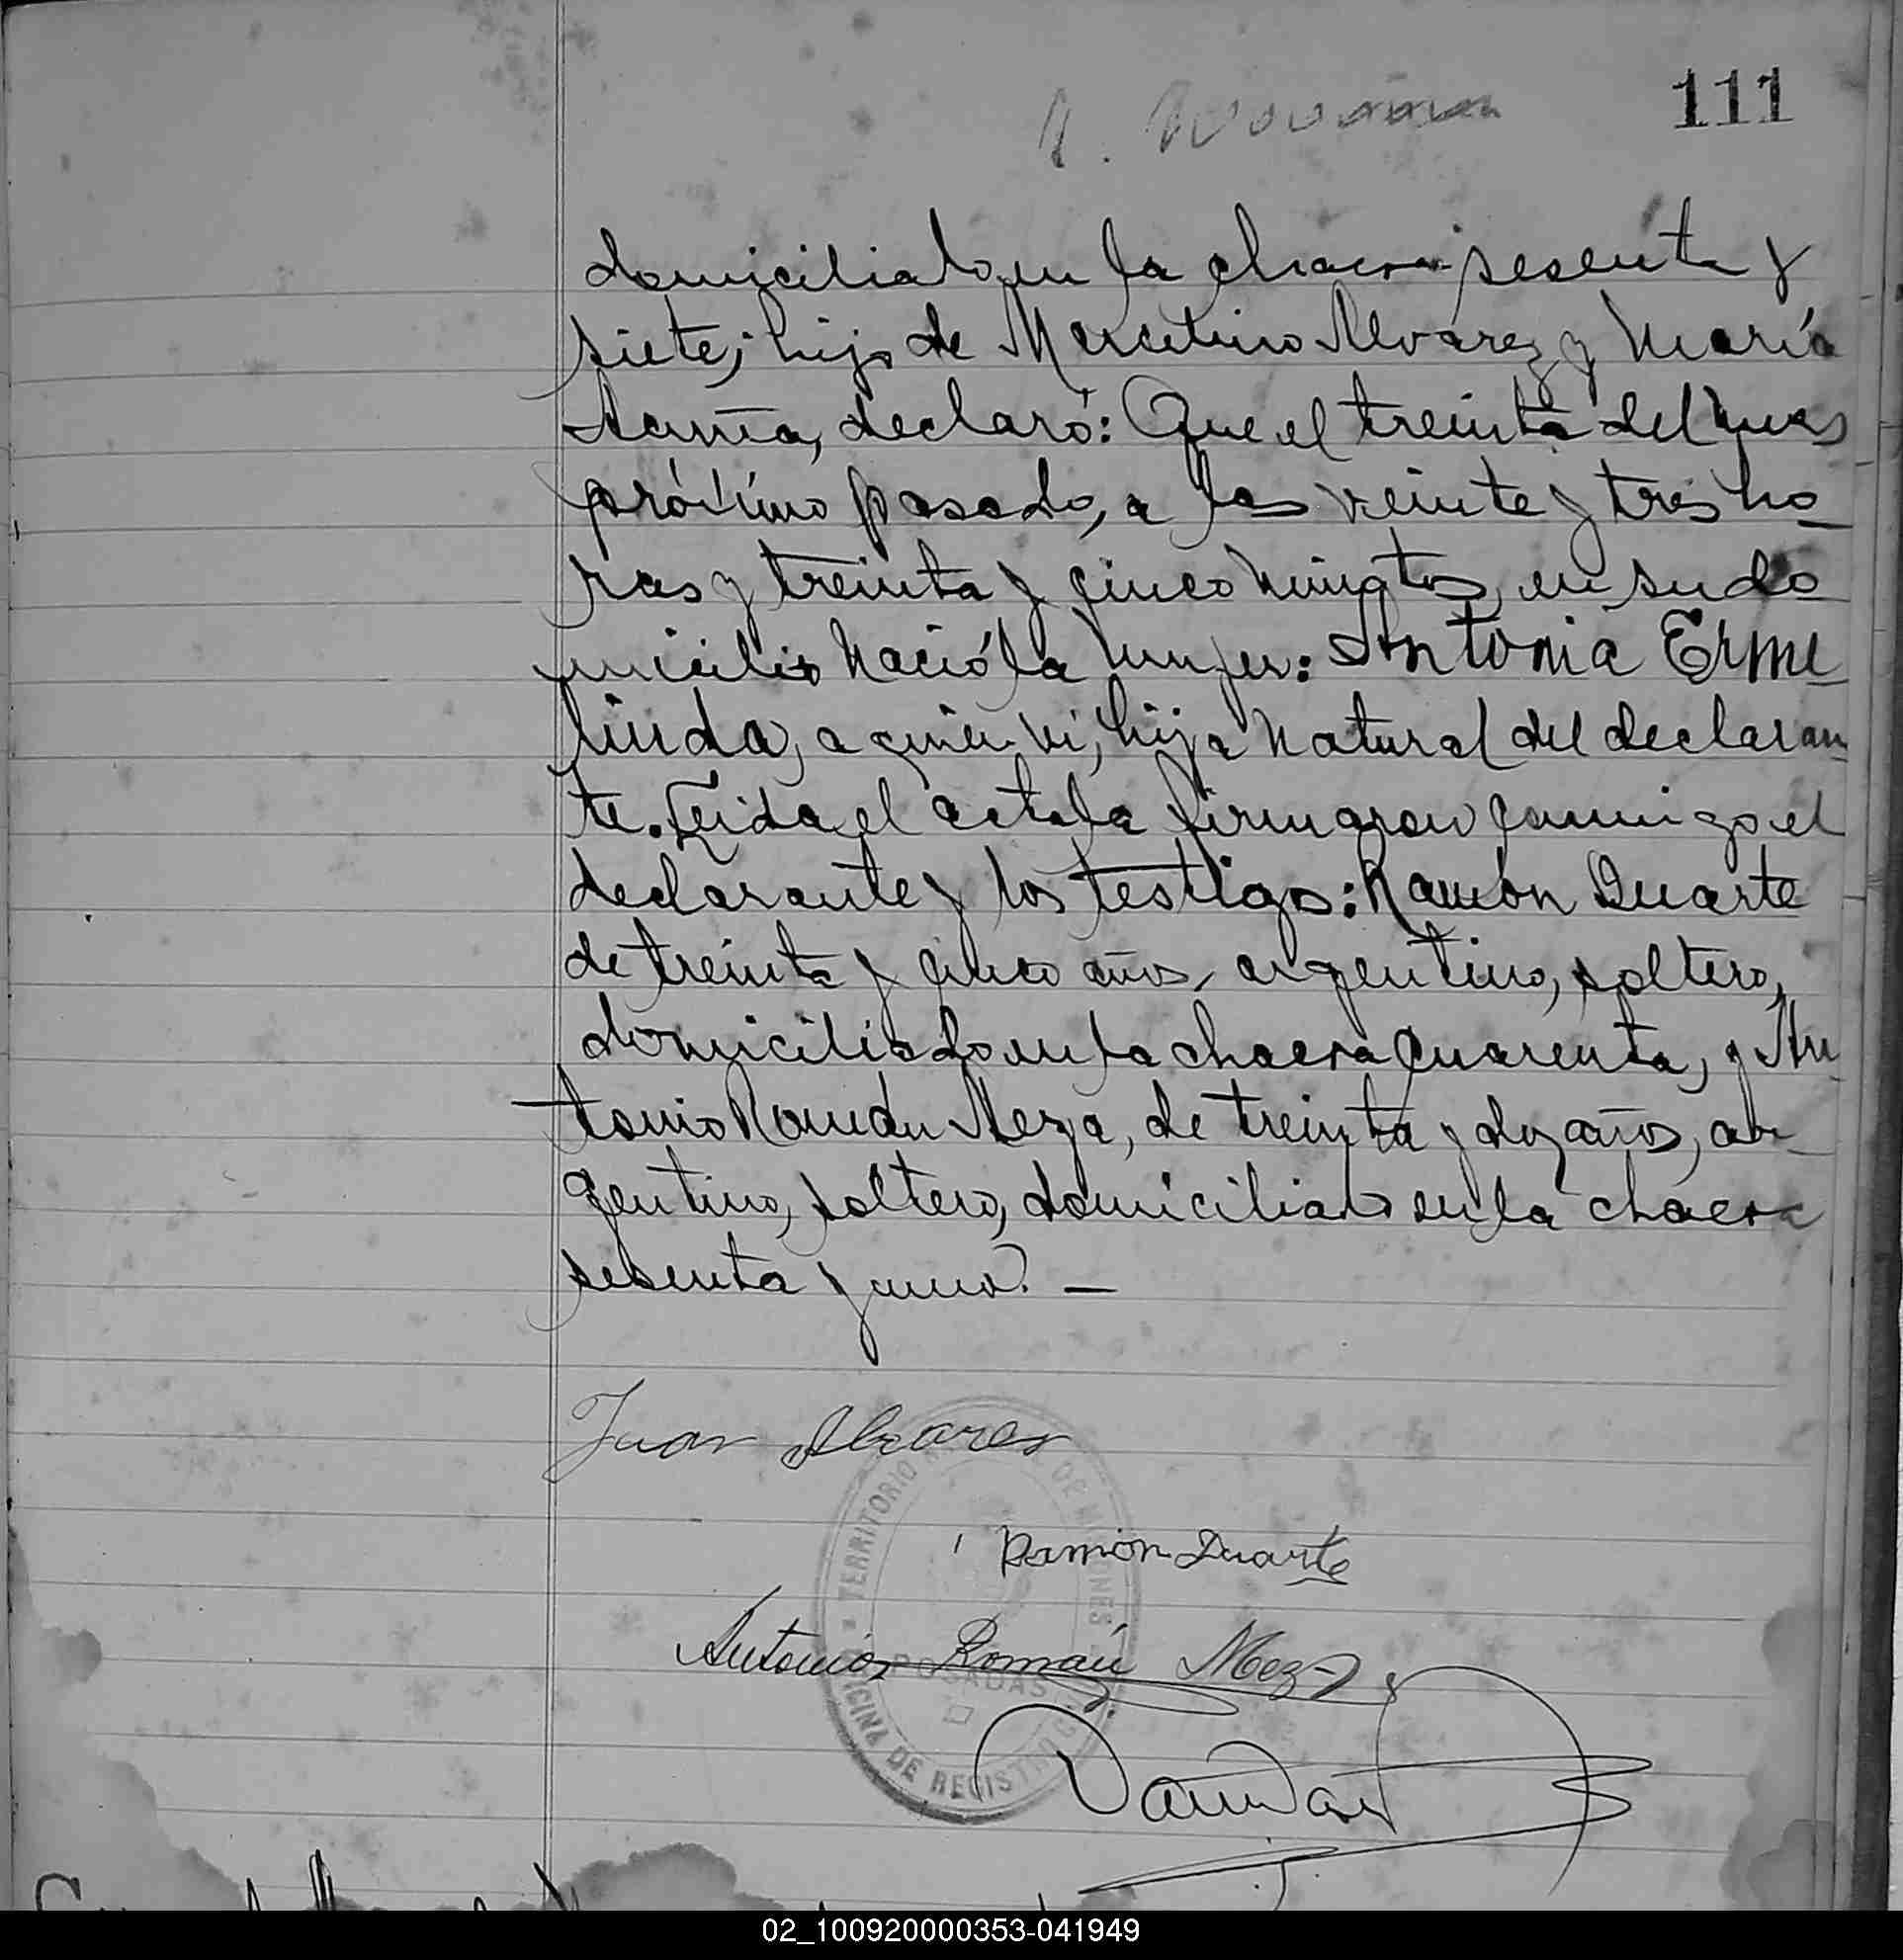 111
domiciliado en la chacra sesenta y
siete; hijo de Marcelino Alvarez y María
Acuña, declaró: Que el treinta del mes
próximo pasado, a las veinte y tres ho_
ras y treinta y cinco minutos, en su do
micilio nació la mujer: Antonia Erme_
linda, a quien vi, hija natural del declaran_
te. Leida el acta la firmaron conmigo el
declarante y los testigos: Ramón Duarte
de treinta y cinco años, argentino, soltero,
domiciliado en la chacra cuarenta, y An_
tonio Román Meza, de treinta y dos años, ar_
gentino, soltero, domiciliado en la chacra
sesenta y uno. —
Juan Alvarez
Ramón Duarte
Antonio Román Meza
TERRITORIO DE MISIONES
POSADAS
OFICINA DE REGISTRO
02_100920000353-041949